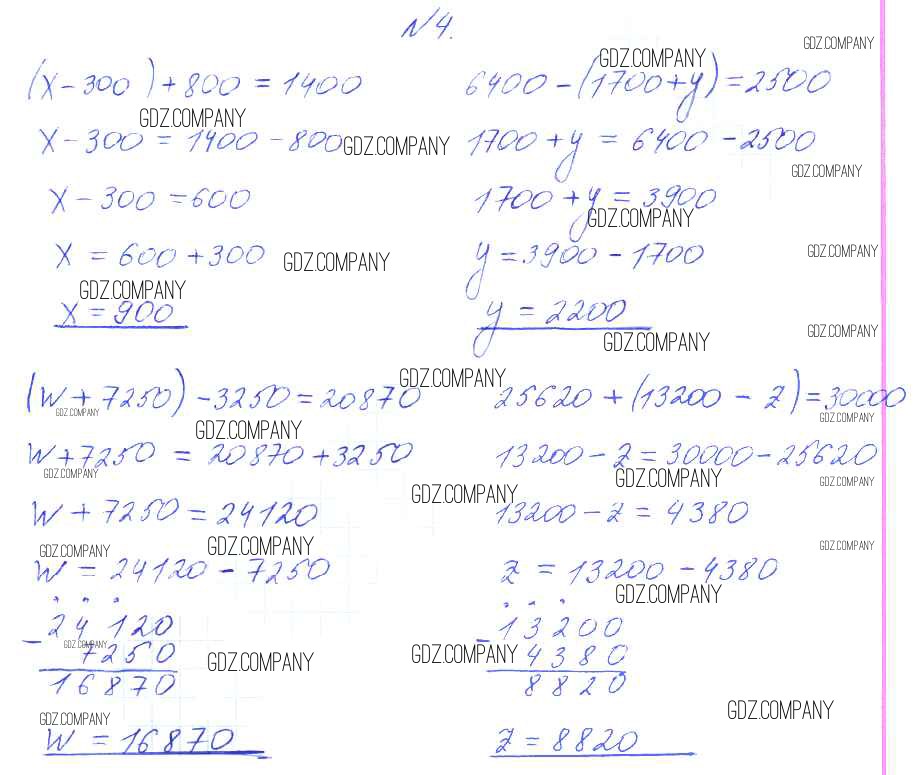 N 4.
GDZ.COMPANY
(x - 300) + 800 = 1400
GDZ.COMPANY
x - 300 = 1400 - 800
GDZ.COMPANY
x - 300 = 600
x = 600 + 300
GDZ.COMPANY
GDZ.COMPANY
x = 900
GDZ.COMPANY
6400 - (1700 + y) = 2500
1700 + y = 6400 - 2500
GDZ.COMPANY
1700 + y = 3900
GDZ.COMPANY
y = 3900 - 1700
GDZ.COMPANY
y = 2200
GDZ.COMPANY
GDZ.COMPANY
GDZ.COMPANY
(w + 7250) - 3250 = 20870
GDZ.COMPANY
GDZ.COMPANY
w + 7250 = 20870 + 3250
GDZ.COMPANY
GDZ.COMPANY
w + 7250 = 24120
GDZ.COMPANY
GDZ.COMPANY
w = 24120 - 7250
- 24120
GDZ.COMPANY
7250
GDZ.COMPANY
16870
GDZ.COMPANY
w = 16870
25620 + (13200 - z) = 30000
GDZ.COMPANY
13200 - z = 30000 - 25620
GDZ.COMPANY
GDZ.COMPANY
13200 - z = 4380
GDZ.COMPANY
z = 13200 - 4380
GDZ.COMPANY
- 13200
GDZ.COMPANY
4380
8820
GDZ.COMPANY
z = 8820